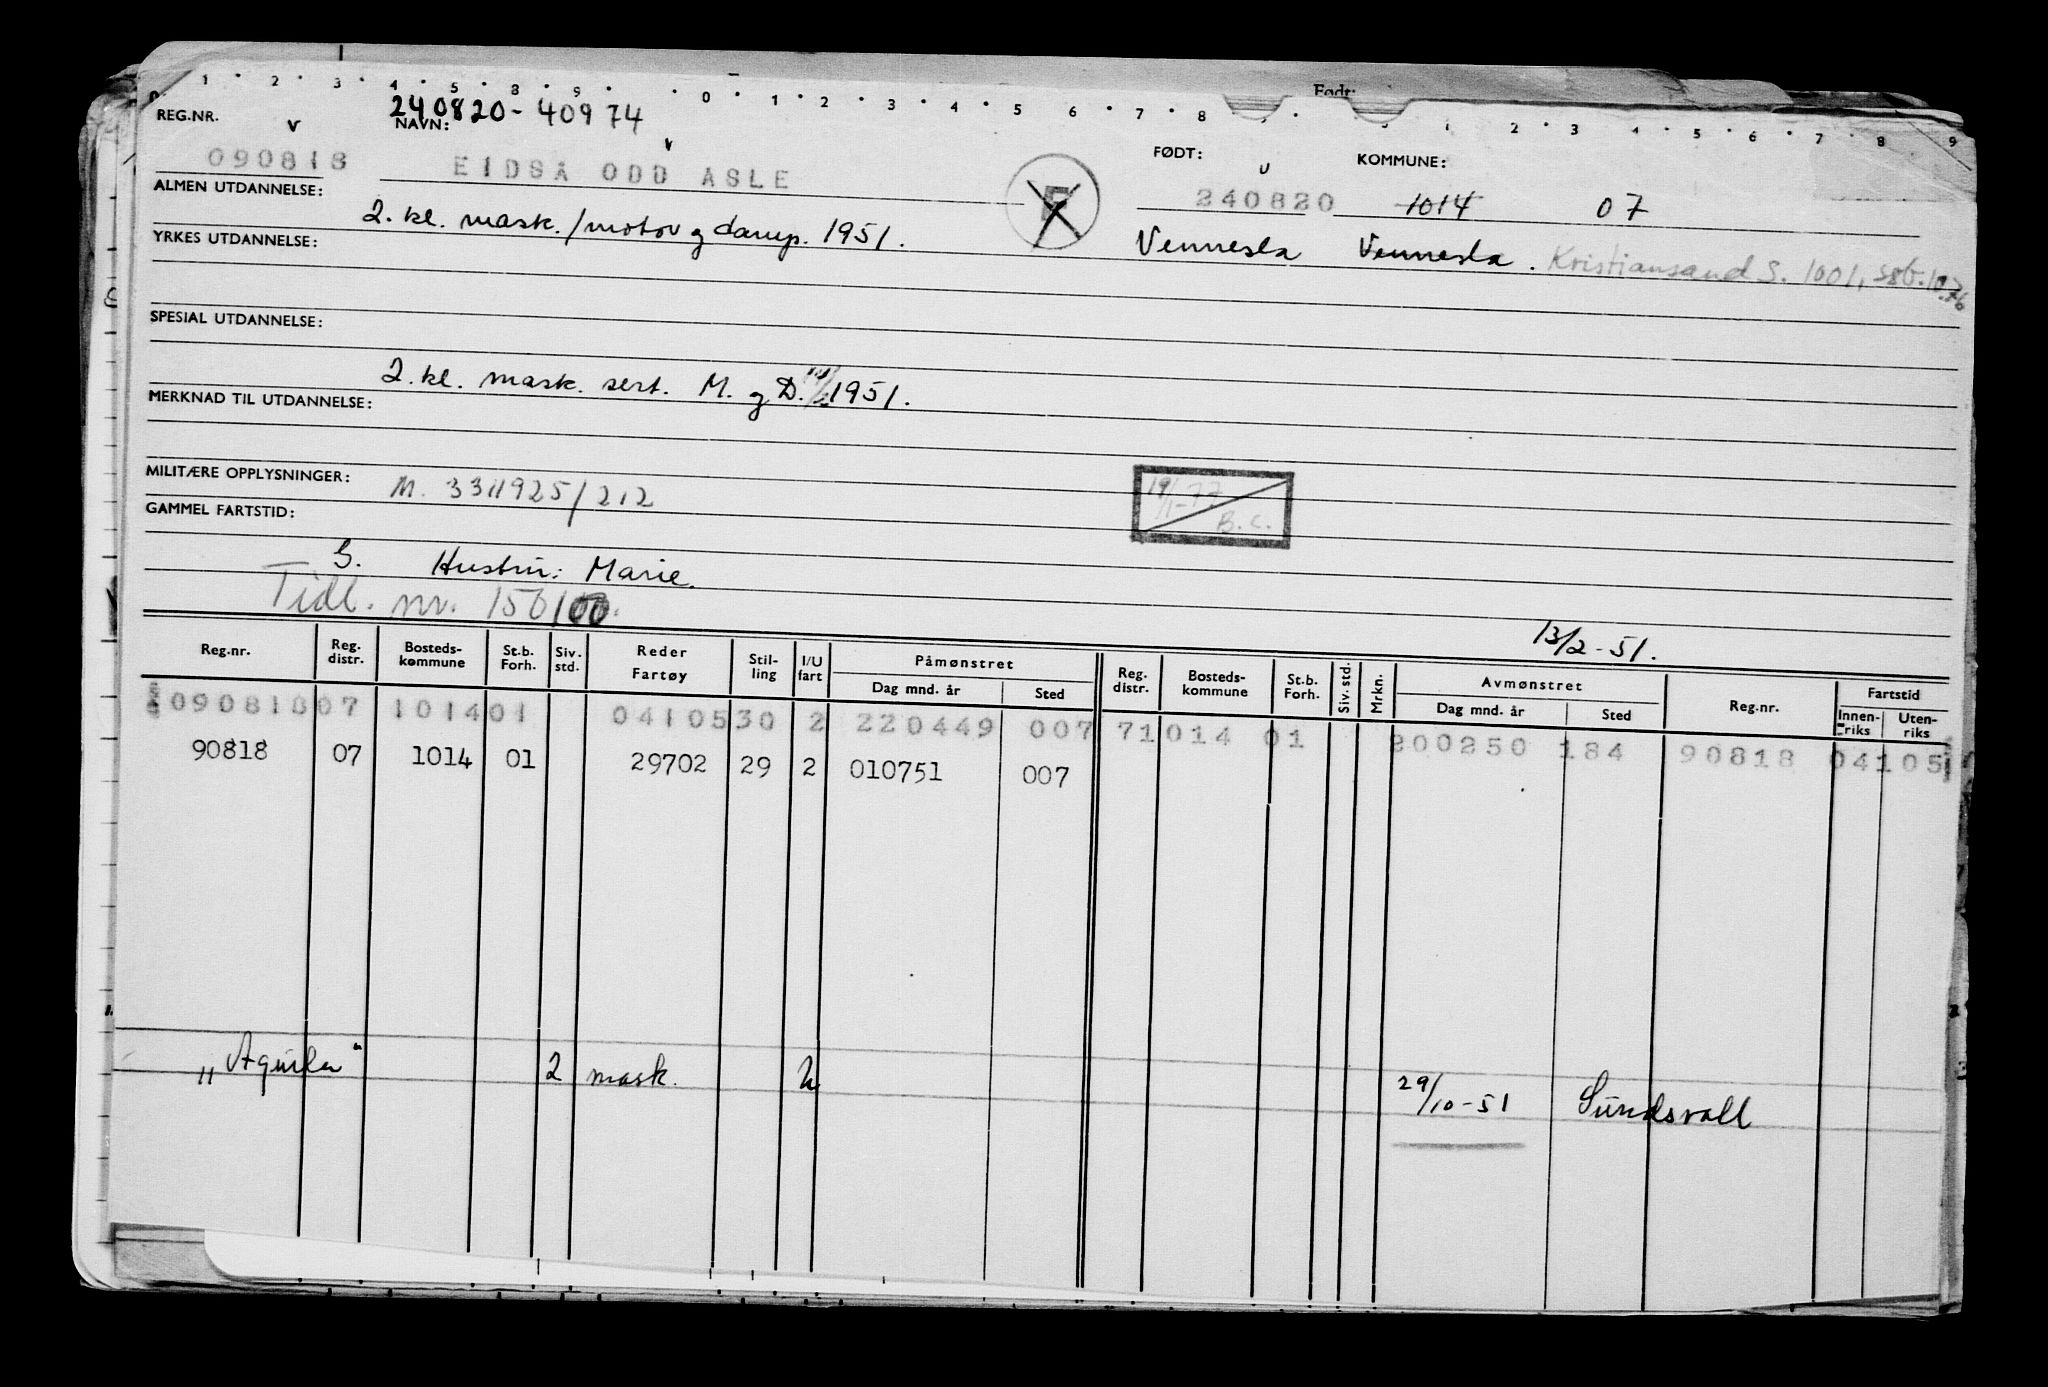 Født:
0 1 2 3 4 5 8 9 0 1 2 3 4 5 6 7 8 1 2 3 4 5 6 7 8 9
REG.NR. 240820-40974
NAVN: FØDT: KOMMUNE:
090818 EIDSÅ ODD ASLE 240820 1014 07
ALMEN UTDANNELSE:
2. kl. mask./motor og damp. 1951. Vennesla Vennesla. Kristiansand S. 1001,
YRKES UTDANNELSE:
SPESIAL UTDANNELSE:
2. kl. mask. sert. M. og D. 1951.
MERKNAD TIL UTDANNELSE:
MILITÆRE OPPLYSNINGER: M. 3311925/212
19/1-77
B.C.
GAMMEL FARTSTID:
G. Hustru: Marie.
Tidl. nr. 150100.
13/2-51.
Reg.nr. Reg. distr. Bosteds-kommune St.b. Forh. Siv. std. Reder Fartøy Stil-ling I/U fart Påmønstret Dag mnd. år Sted Reg. distr. Bosteds-kommune St.b. Forh. Siv. std. Mrkn. Avmønstret Dag mnd. år Sted Reg.nr. Fartstid Innen-riks Uten-riks
09081807 101401 0410530 2 220449 007 71014 01 200250 184 90818 04105
90818 07 1014 01 29702 29 2 010751 007
"Aquila" 2 mask. U 29/10-51 Sundsvall